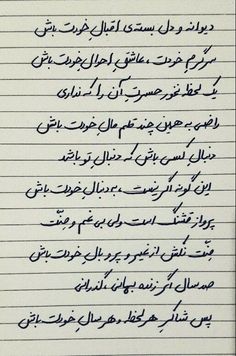 دیوانه و دل بسته‌ی اقبال خودت باش
سرگرم خودت، عاشق احوال خودت باش
یک لحظه نخور حسرت آن را که نداری
راضی به همین چند قلم مال خودت باش
دنبال کسی باش که دنبال تو باشد
این گونه اگر نیست، به دنبال خودت باش
پرواز قشنگ است ولی بی غم و منّت
منّت نکش از غیر و پر و بال خودت باش
صد سال اگر زنده بمانی، گذرانی
پس شاکر هر لحظه و هر سال خودت باش